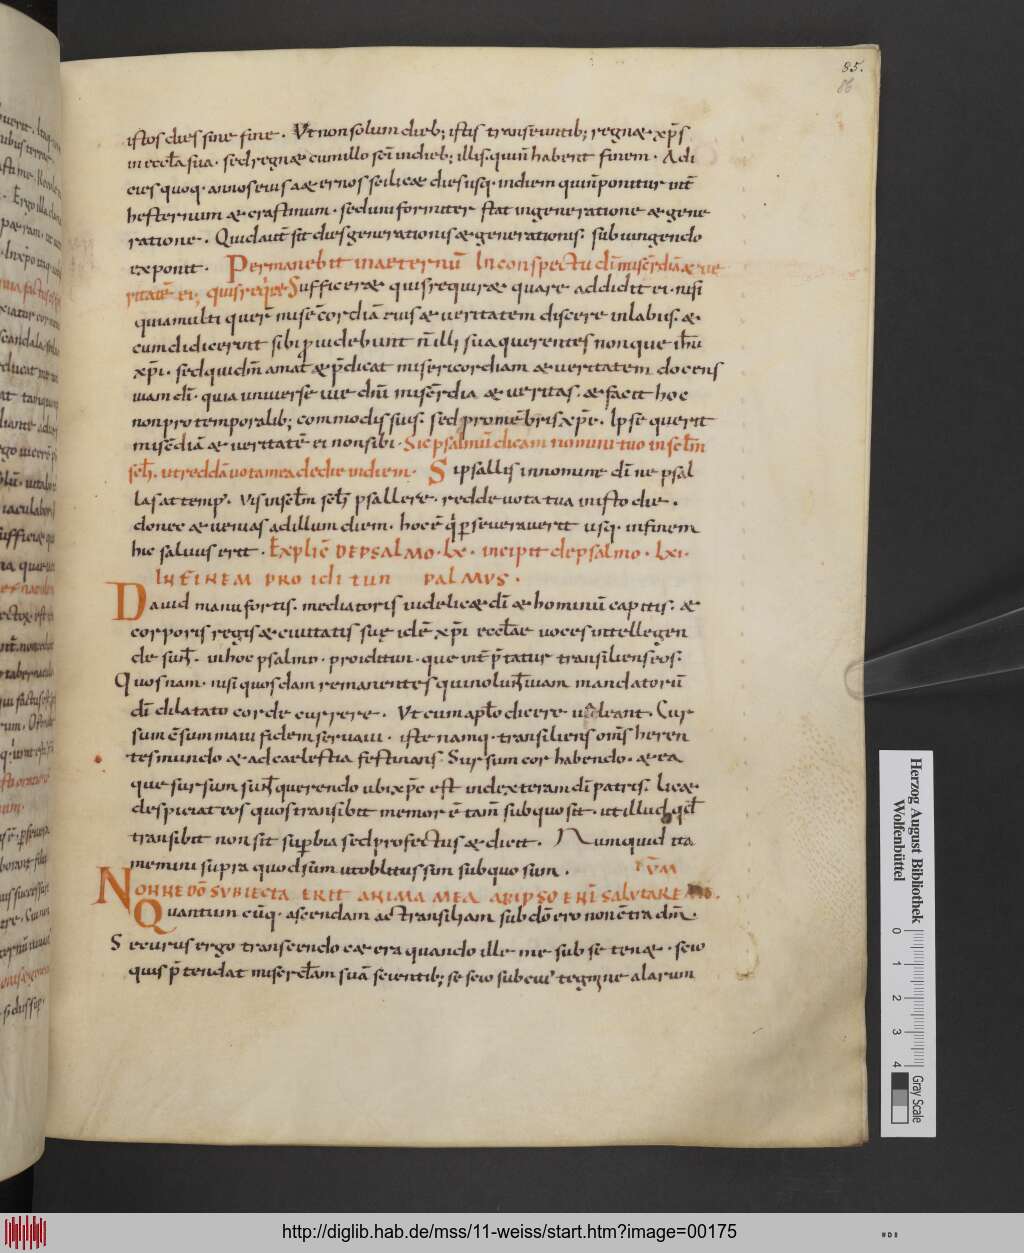 85.
86
istos dies sine fine. Ut non solum dieb; istis transeuntib; regnæ xp̄s
in eccl̄a sua. sed regnæ cum illo sc̄i in dieb; illis. qui n̄ habent finem. Adi
eies quoq. annos eius aæernos scilicæ dies usq. in diem qui n̄ ponitur int̄
hesternum æ crastinum. sed uniformiter stat in generatione æ gene
ratione. Quid aut̄ sit dies generationis æ generationis. subiungendo
exponit. Permanebit in aeternū In conspectu dī miserdiā æ ue
ritatē ei; quis reqret Sufficeræ quis requiræ quare addidit ei. nisi
quia multi quer̄ misēcordiā eius æ ueritatem discere in labiis. æ
cum didicerint sibi ꝓuidebunt n̄ illi sua querentes non que ih̄u
xp̄i. sed qui dn̄m amat æ p̄dicat misericordiam æ ueritatem docens
uiam dī. quia uniuerse uie dn̄i miserdia æ ueritas. æ facit hoc
non pro temporalib; commodis suis. sed pro mēbris xp̄i. Ipse querit
misēdiā æ ueritatē ei non sibi. Sic psalmū dicam nomini tuo in sc̄lm
sc̄li. ut reddā uota mea de die in diem. Si psallis in nomine dī ne psal
las at temp'. Vis in sc̄lm sc̄li psallere. redde uota tua in isto die.
donec æ uenias ad illum diem. hoc ē q̄ ꝑseuerauerit usq. in finem
hic saluus erit. Explic̄ DE PSALMO. LX. incipit de psalmo. LXI.
IN FINEM PRO IDITUN PALMUS.
Dauid manu fortis. mediatoris uidelicæ dī æ hominū capitis. æ
corporis regis æ ciuitatis suę idē xp̄i eccl̄ae uoces intellegen
de sunt. in hoc psalmo. pro iditun. que int̄ p̄tatur transiliens eos.
Quosnam. nisi quosdam remanentes qui nolunt uiam mandatorū
dī dilatato corde currere. Ut cum apl̄o dicere ualeant. Cur
sum c̄sum maui fidem seruaui. iste namq. transiliens oms heren
tes mundo æ ad caelestia festinans. Sursum cor habendo. æ ea
que sursum sunt querendo ubi xp̄c est in dexteram dī patris. licæ
despiciat eos quos transibit memor ē tam̄ sub quo sit. ut illud qd̄
transibit non sit suꝑbia sed profectus æ dicit. Numquid ita
memini supra quod sūm ut oblitus sim sub quo sum.
NONNE DŌ SUBIECTA ERIT ANIMA MEA AB IPSO ENĪ SALUTARE
Quantum cūq. ascendam ac transiliam sub dō ero non c̄tra dm̄.
Securus ergo transcendo cætera quando ille me sub se tenæ. scio
quis p̄tendat miserc̄dam suā scientib; se scio sub cui' tegmine alarum
Herzog August Bibliothek
Wolfenbüttel
0 1 2 3 4
Gray Scale
http://diglib.hab.de/mss/11-weiss/start.htm?image=00175